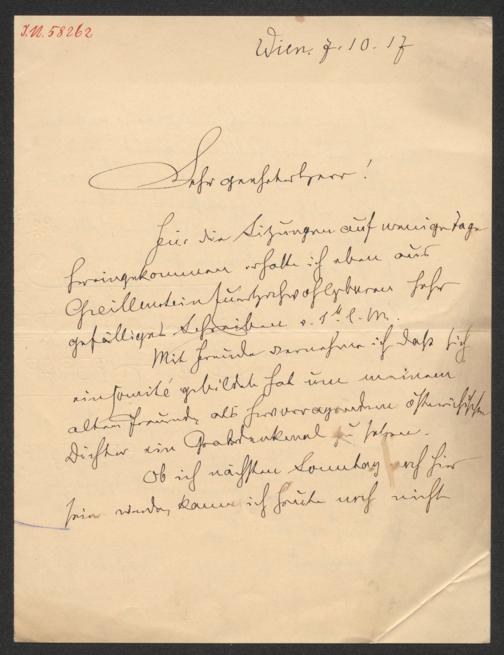 I.N. 58262
Wien. 7. 10. 17
Sehr geehrter Herr!
Für die Sitzungen auf wenige Tage
hereingekommen erhalte ich eben aus
Greillenstein Euer Hochwohlgeboren sehr
gefälliges Schreiben v. 1t l. M.
Mit Freude vernehme ich daß sich
ein Comité gebildet hat um meinem
alten Freund, als hervorragendem österreichischen
Dichter ein Grabdenkmal zu setzen.
Ob ich nächsten Sonntag noch hier
sein werde, kann ich heute noch nicht